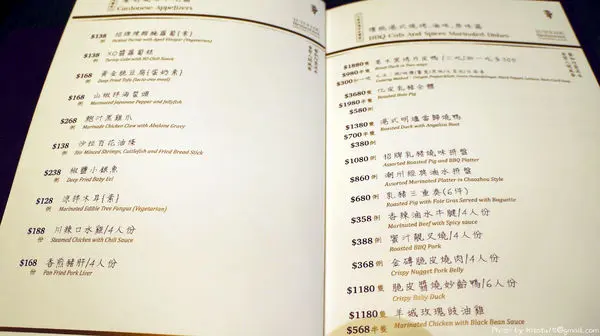 Cantonese Appetizers
$138 例 招牌辣醋醃蘿蔔{素}
Pickled Turnip with Aged Vinegar (Vegetarian)
$138 例 XO醬蘿蔔糕
Turnip Cake with XO Chili Sauce
$168 例 黃金脆豆腐{蛋奶素}
Deep Fried Tofu (lacto-ovo meal)
$168 例 山椒拌海蜇頭
Marinated Japanese Pepper and Jellyfish
$268 例 鮑汁黑雞爪
Marinade Chicken Claw with Abalone Gravy
$138 例 沙拉百花油條
Stir Minced Shrimps, Cuttlefish and Fried Bread Stick
$238 例 椒鹽小銀魚
Deep Fried Baby Eel
$128 例 涼拌木耳{素}
Marinated Edible Tree Fungus (Vegetarian)
$188 份 川辣口水雞/4人份
Steamed Chicken with Chili Sauce
$168 份 香煎豬肝/4人份
Pan Fried Pork Liver
BBQ Cuts And Spices Marinated Dishes
$1880 隻
$980 半隻
$300
$3680 隻 化皮乳豬全體
$1980 半隻 Roasted Hole Pig
$580 例
$1380 隻 港式明爐當歸鴨
$700 半隻 Roasted Duck with Angelica Root
$380 例
$1080 例 招牌乳豬燒味拼盤
Assorted Roasted Pig and BBQ Platter
$860 例 潮州經典滷水拼盤
Assorted Marinated Platter in Chaozhou Style
$680 例 乳豬三重奏(6件)
Roasted Pig with Foie Gras Served with Baguette
$358 例 香辣滷水牛腱/4人份
Marinated Beef with Spicy sauce
$388 例 蜜汁靚叉燒/4人份
Roasted BBQ Pork
$368 例 金磚脆皮燒肉/4人份
Crispy Nugget Pork Belly
$1180 隻 脆皮醬燒妙齡鴨/6人份
Crispy Baby Duck
$1180 隻 羊城玫瑰豉油雞
$568 半隻 Marinated Chicken with Black Bean Sauce